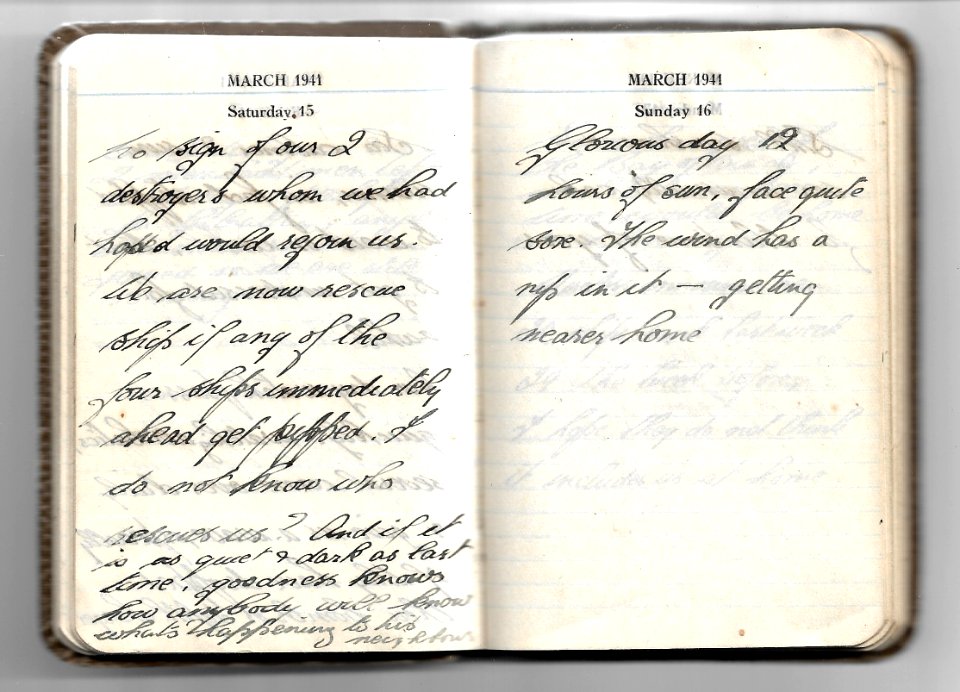 MARCH 1941
Saturday, 15
No sign of our 2
destroyers whom we had
hoped would rejoin us.
We are now rescue
ship if any of the
four ships immediately
ahead get pipped. I
do not know who
rescues us? And if it
is as quiet & dark as last
time, goodness knows
how anybody will know
whats happening to his
neighbour
MARCH 1941
Sunday 16
Glorious day 12
hours of sun, face quite
sore. The wind has a
nip in it — getting
nearer home